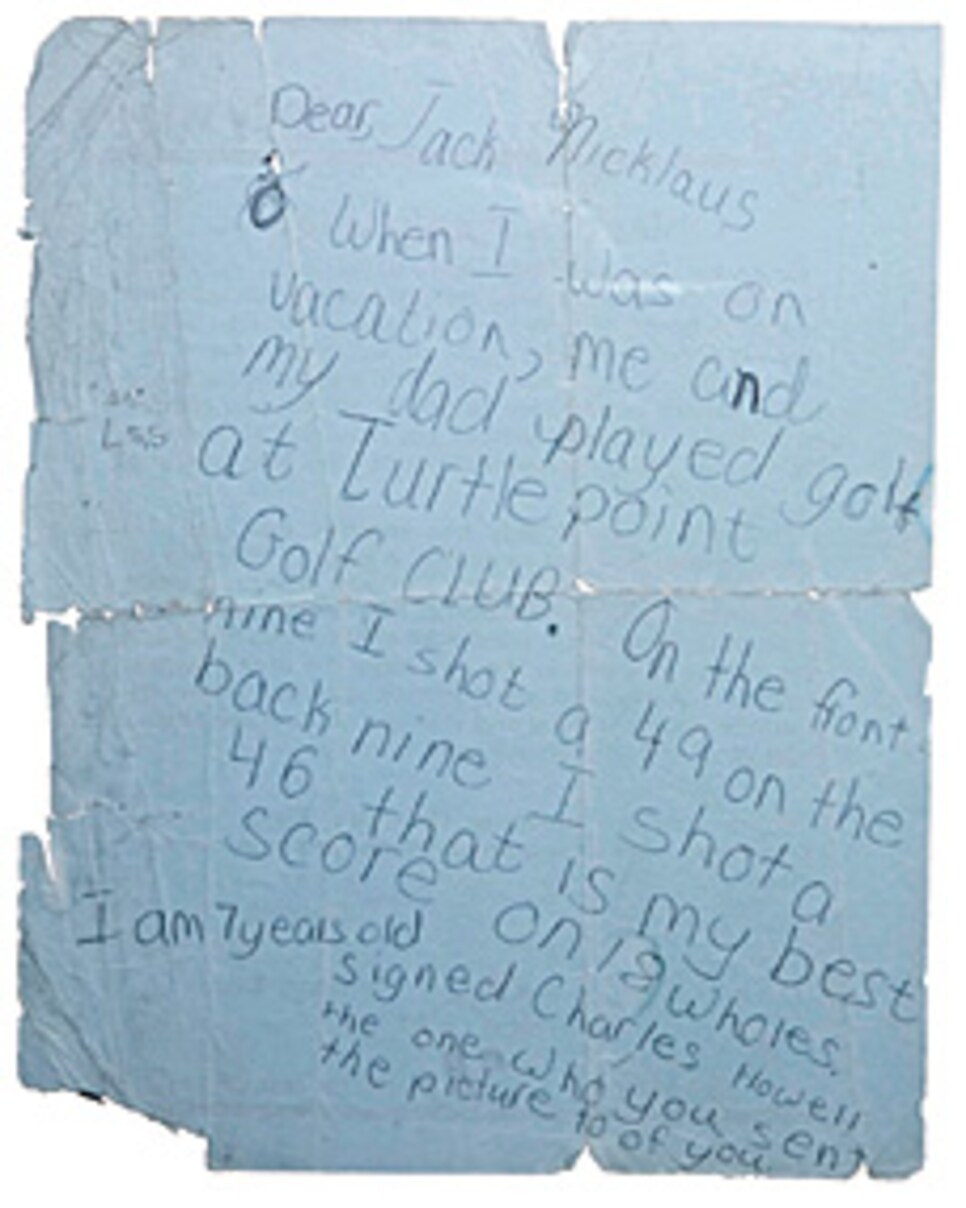 Dear, Jack Nicklaus
When I was on
vacation, me and
my dad played golf
at Turtle point
Golf CLUB. On the front
nine I shot a 49 on the
back nine I shot a
46 that is my best
score on 18 wholes.
I am 7 years old
signed Charles Howell
the one who you sent
the picture to of you